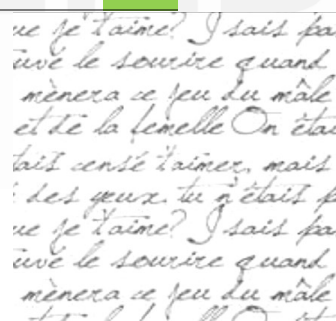 ue je t'aime? J sais pa
uvé le sourire quand
mènera ce jeu du mâle
et de la femelle On éta
tait censé t'aimer, mais
des yeux tu n'était p
ue je t'aime? J sais pa
uvé le sourire quand
mènera ce jeu du mâle